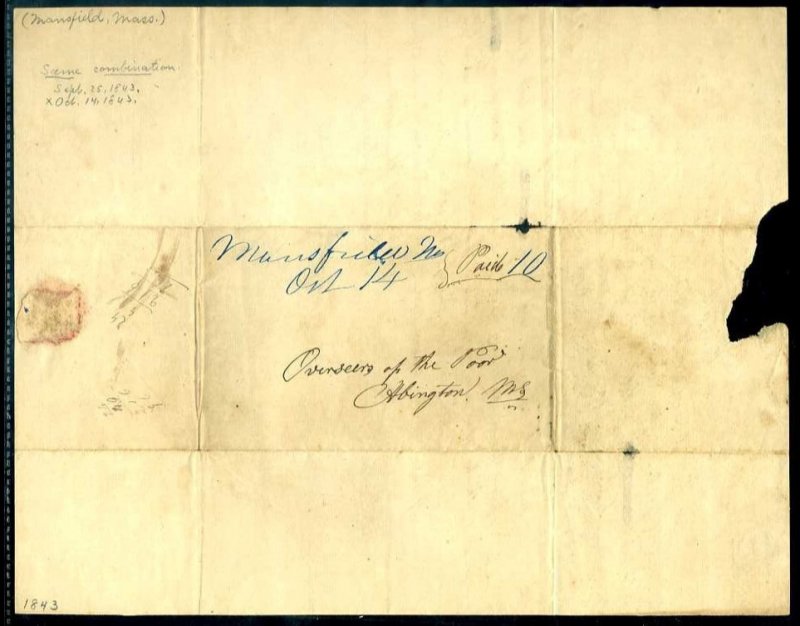 (Mansfield, Mass.)
Same combination.
Sept. 25, 1843.
x Oct. 14, 1843.
Mansfield Ms
Paid 10
Oct 14
Overseers of the Poor
Abington Ms
1843